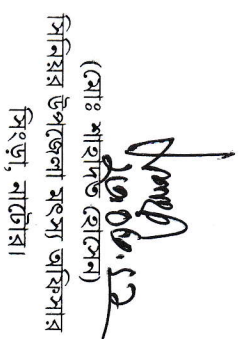 (মোঃ শাহাদত হোসেন)
সিনিয়র উপজেলা মৎস্য অফিসার
সিংড়া, নাটোর।